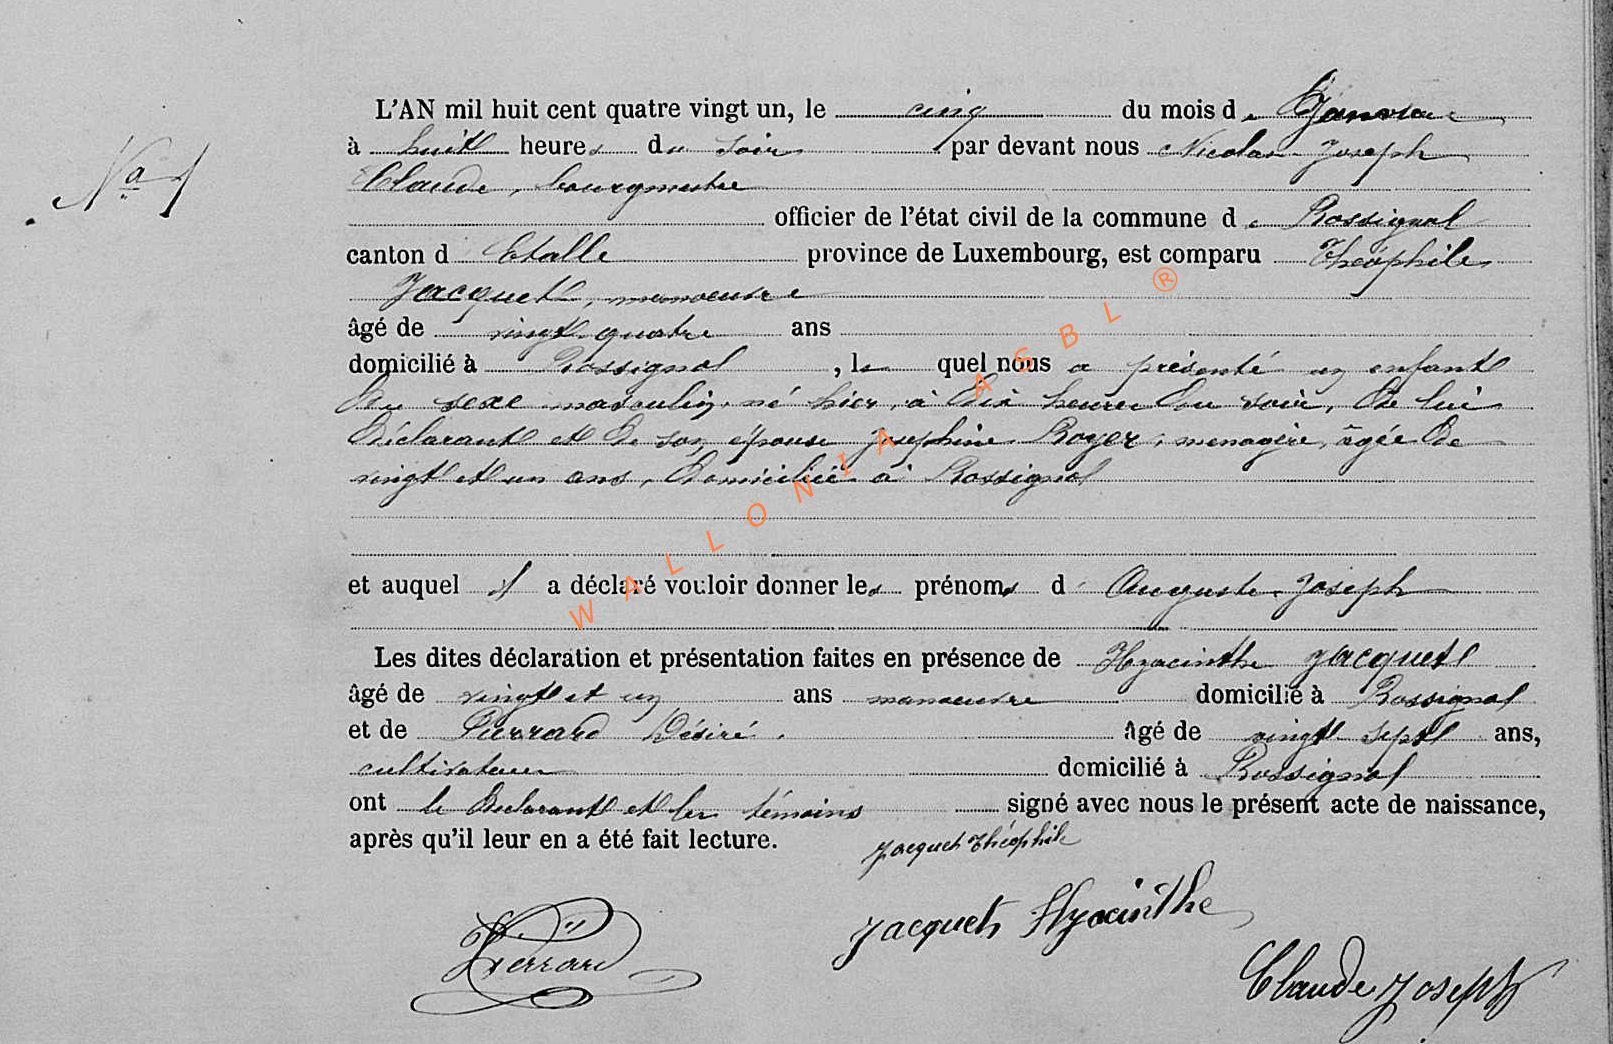 L'AN mil huit cent quatre vingt un, le cinq du mois de Janvier
Nº 1
à huit heures du soir par devant nous Nicolas Joseph
Claude, bourgmestre
officier de l'état civil de la commune de Rossignol
canton d Etalle province de Luxembourg, est comparu Théophile
Jacquet, manoeuvre
âgé de vingt quatre ans
domicilié à Rossignol, le quel nous a présenté un enfant
du sexe masculin, né hier, à dix heures du soir, de lui
déclarant et de son épouse Josephine Royer, menagère, âgée de
vingt et un ans, domiciliée à Rossignol
et auquel il a déclaré vouloir donner les prénoms d' Auguste Joseph
Les dites déclaration et présentation faites en présence de Hyacinthe Jacquet
âgé de vingt et un ans manoeuvre domicilié à Rossignol
et de Pierrard Désiré. âgé de vingt sept ans,
cultivateur domicilié à Rossignol
ont le déclarant et les témoins signé avec nous le présent acte de naissance,
après qu'il leur en a été fait lecture.
Jacquet Théophile
Jacquet Hyacinthe
Pierrard
Claude Joseph
WALLONIA ASBL ®